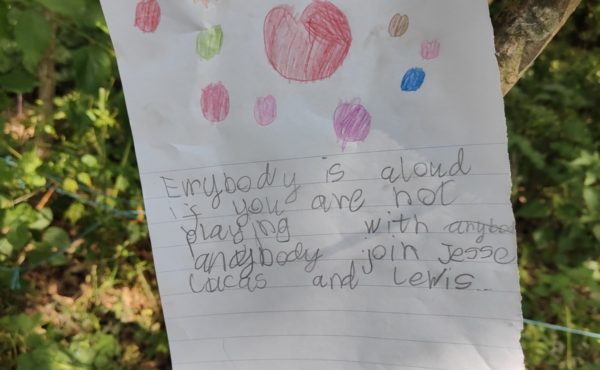 Evrybody is aloud
if you are not
playing with anybo
andybody join Jesse
Lucas and Lewis...